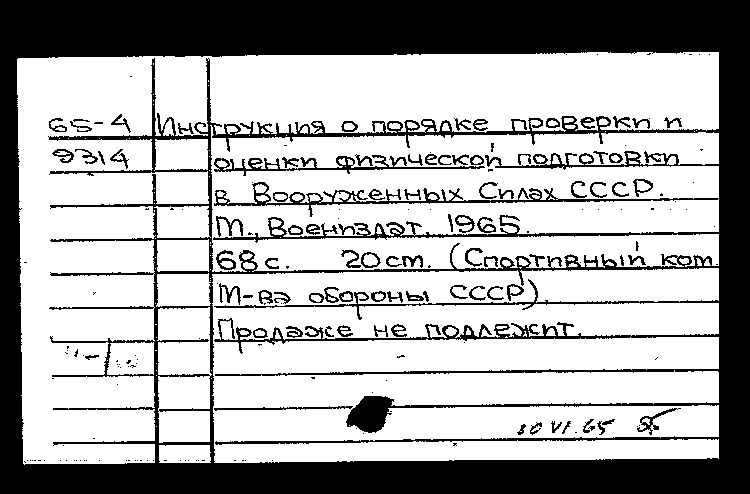 65-4 Инструкция о порядке проверки и
9314 оценки физической подготовки
в Вооруженных Силах СССР.
М., Воениздат. 1965.
68 с. 20 cm. (Спортивный ком.
М-ва обороны СССР).
Продаже не подлежит.
30 VI.65